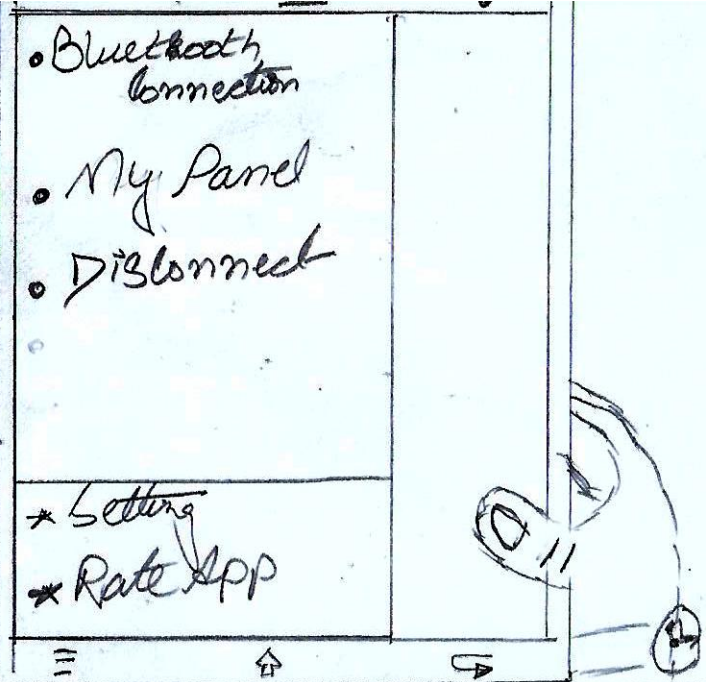 Bluethooth
Connection
My Panel
Disconnect
Setting
Rate App